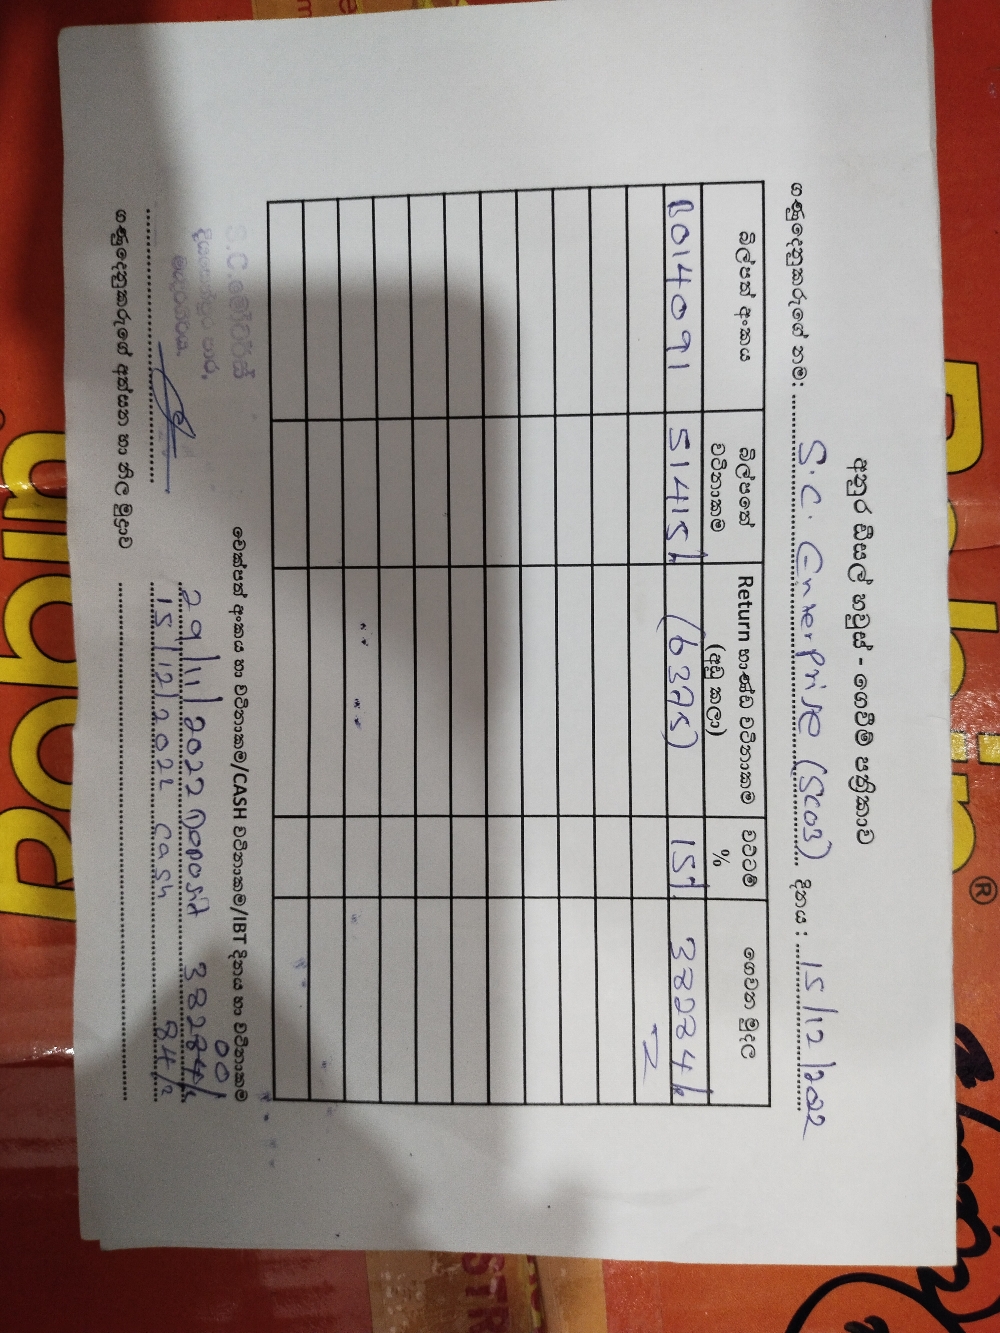 අනුර ඩීසල් හවුස් - ගෙවීම් පත්‍රිකාව
ගණුදෙනුකරුගේ නම: S.C. Enterprise (SC03) දිනය : 15/12/2022
බිල්පත් අංකය බිල්පතේ වටිනාකම Return භාණ්ඩ වටිනාකම (අඩු කලා) වට්ටම් % ගෙවන මුදල
B014091 51415/- (6375) 15% 38284/-
චෙක්පත් අංකය හා වටිනාකම/CASH වටිනාකම/IBT දිනය හා වටිනාකම
29/11/2022 Deposit 38200/-
15/12/2022 cash 84/-
ගණුදෙනුකරුගේ අත්සන හා නිල මුද්‍රාව
Robin
®